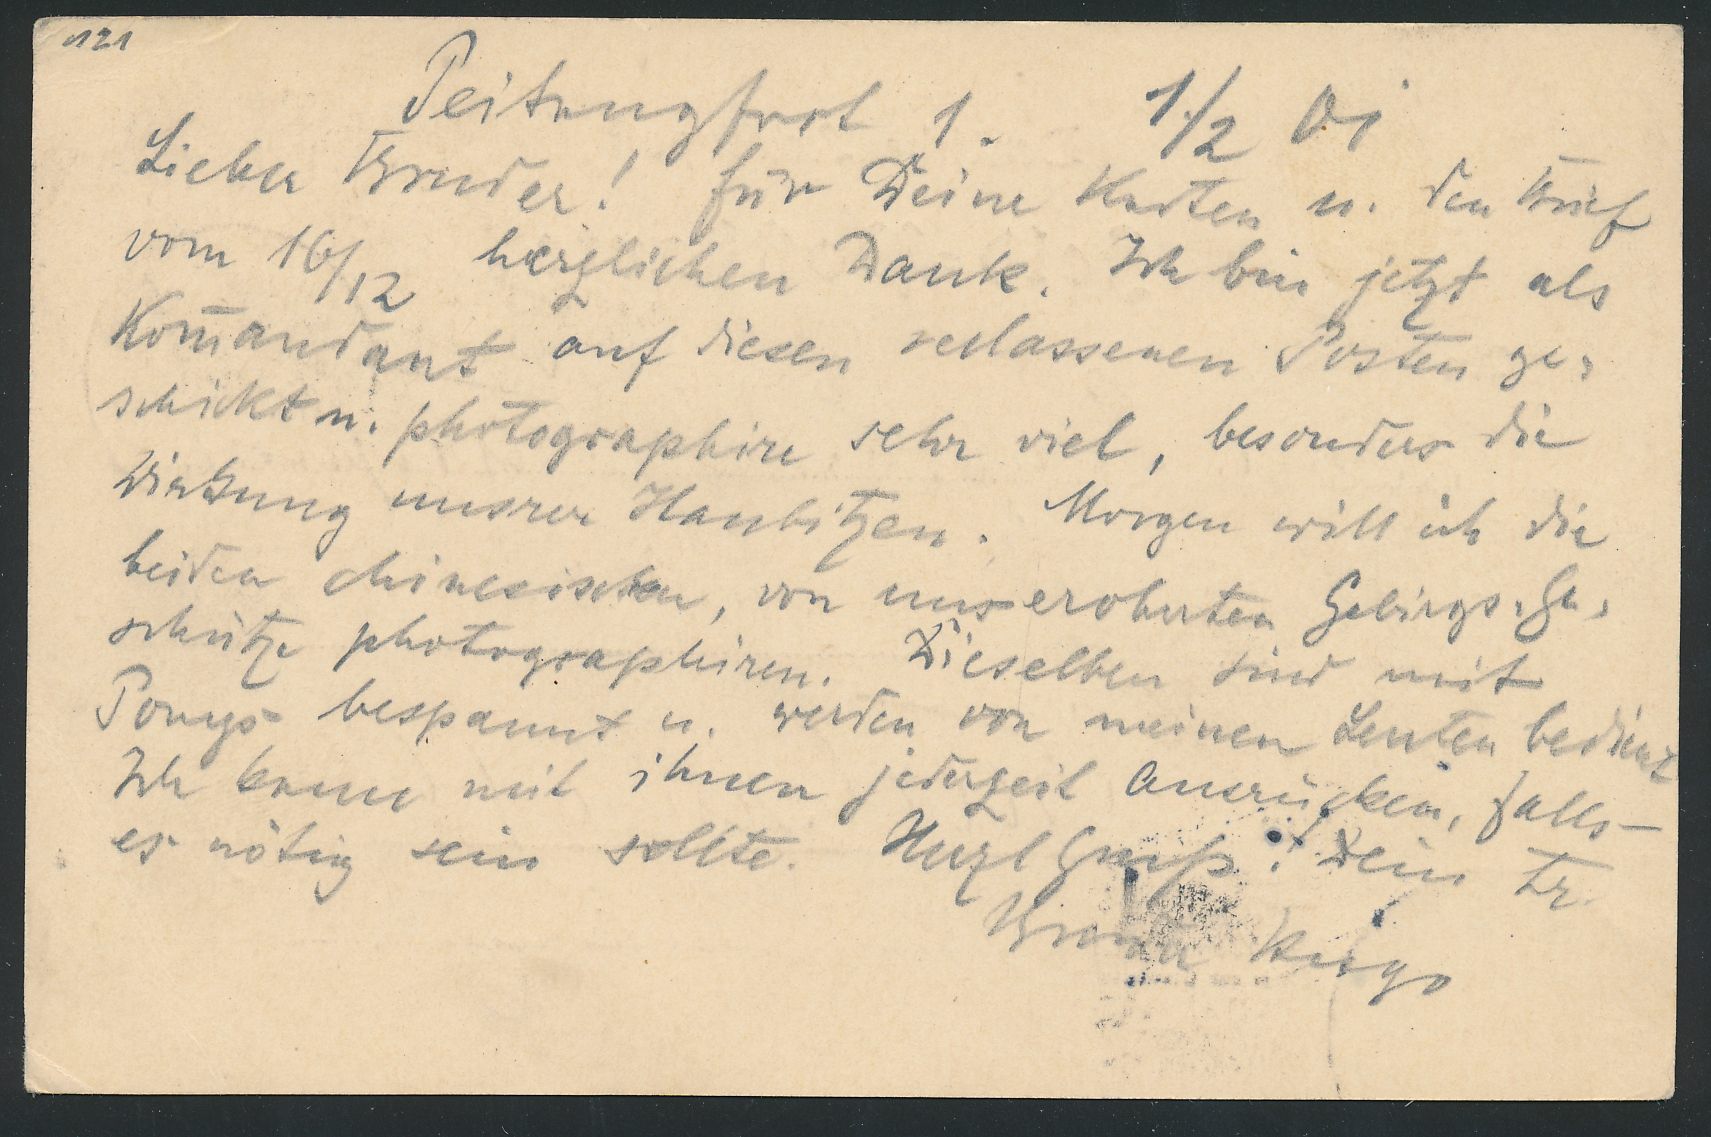 121
Peitangfort 1. 1/2 01
Lieber Bruder! für Deine Karten u. den Brief
vom 16/12 herzlichen Dank. Ich bin jetzt als
Kom̄andant auf diesen verlassenen Posten ge-
schickt u. photographire sehr viel, besonders die
Wirkung unsrer Haubitzen. Morgen will ich die
beiden chinesischen, von uns eroberten Gebirgs-Ge-
schütze photographiren. Dieselben sind mit
Ponys bespannt u. werden von meinen Leuten bedient
Ich kann mit ihnen jederzeit ausrücken, falls
es nötig sein sollte. Herzl Gruß! Dein tr.
Bruder Hugo